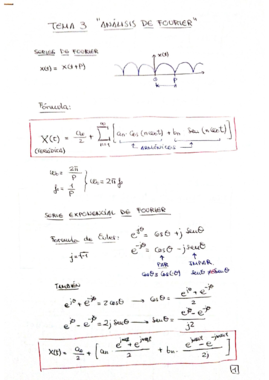 TEMA 3 "ANÁLISIS DE FOURIER"
SERIE DE FOURIER
x(t)
x(t) = x(t+P)
0 P t
Fórmula:
X(t) = a₀/2 + ∑ n=1 ∞ [an · cos (nω₀t) + bn · sen (nω₀t)]
(PERIÓDICA)
T. armónicos
ω₀ = 2π/P
f₀ = 1/P
ω₀ = 2π f₀
SERIE EXPONENCIAL DE FOURIER
Fórmula de Euler:
e^jθ = cosθ + j senθ
e^-jθ = cosθ - j senθ
j = √-1
PAR IMPAR
cosθ = cos(-θ)
TAMBIÉN
e^jθ + e^-jθ = 2 cosθ → cosθ = (e^jθ + e^-jθ)/2
e^jθ - e^-jθ = 2j senθ → senθ = (e^jθ - e^-jθ)/j2
X(t) = a₀/2 + [an · (e^jnω₀t + e^-jnω₀t)/2 + bn · (e^jnω₀t - e^-jnω₀t)/2j]
1